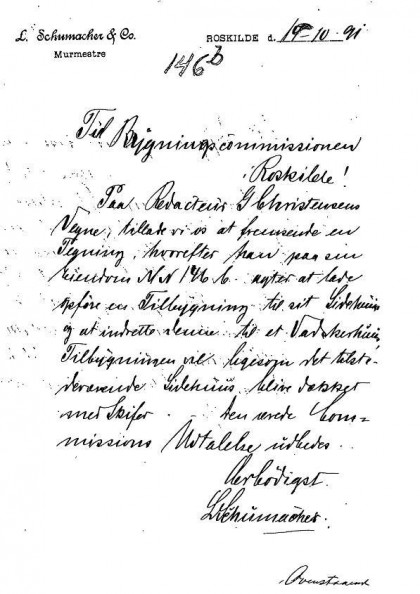 L. Schumacher & Co.
Murmestre
ROSKILDE d. 19-10-91
146b
Til Bygningscommissionen
Roskilde!
Paa Redacteur G Christensens
Vegne, tillade vi os at fremsende en
Tegning, hvorefter han paa sin
Eiendom N.N 146 b. agter at lade
opföre en Tilbygning til sit Sidehuus
og at indrette denne til et Vadskerhuus,
Tilbygningen vil ligesom det tilste-
deværende Sidehuus blive dækket
med Skifer. - Den ærede Com-
missions Udtalelse udbedes.
Ærbödigst.
L. Schumacher.
Ovenstaaende